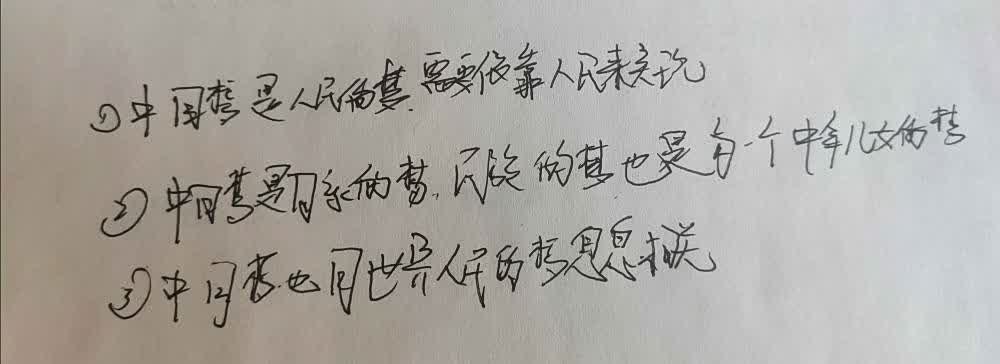 ①中国梦是人民的梦,需要依靠人民来实现
②中国梦是国家的梦,民族的梦也是每一个中华儿女的梦
③中国梦也同世界人民的梦息息相关